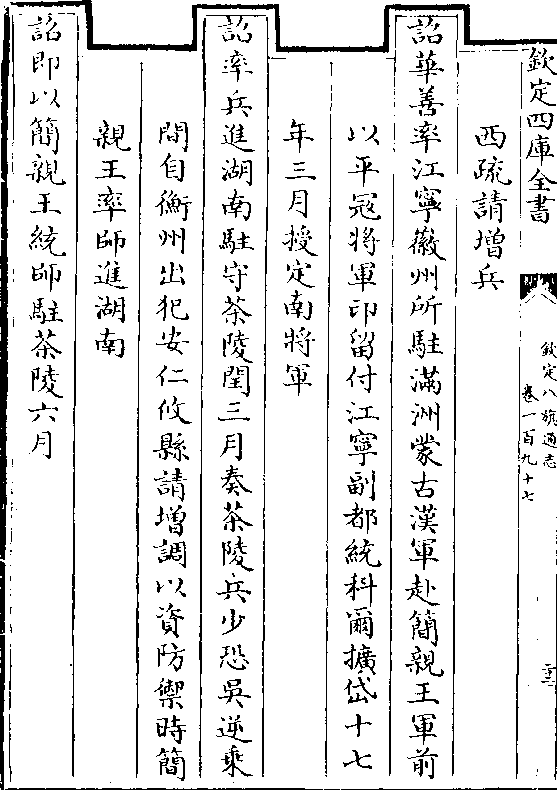 欽定四庫全書
欽定八旗通志
卷一百九十七
西疏請增兵
詔華善率江寧徽州所駐滿洲蒙古漢軍赴簡親王軍前
以平冦將軍印留付江寧副都統科爾擴岱十七
年三月授定南將軍
詔率兵進湖南駐守茶陵閏三月奏茶陵兵少恐吳逆乘
間自衡州出犯安仁攸縣請增調以資防禦時簡
親王率師進湖南
詔即以簡親王統師駐茶陵六月